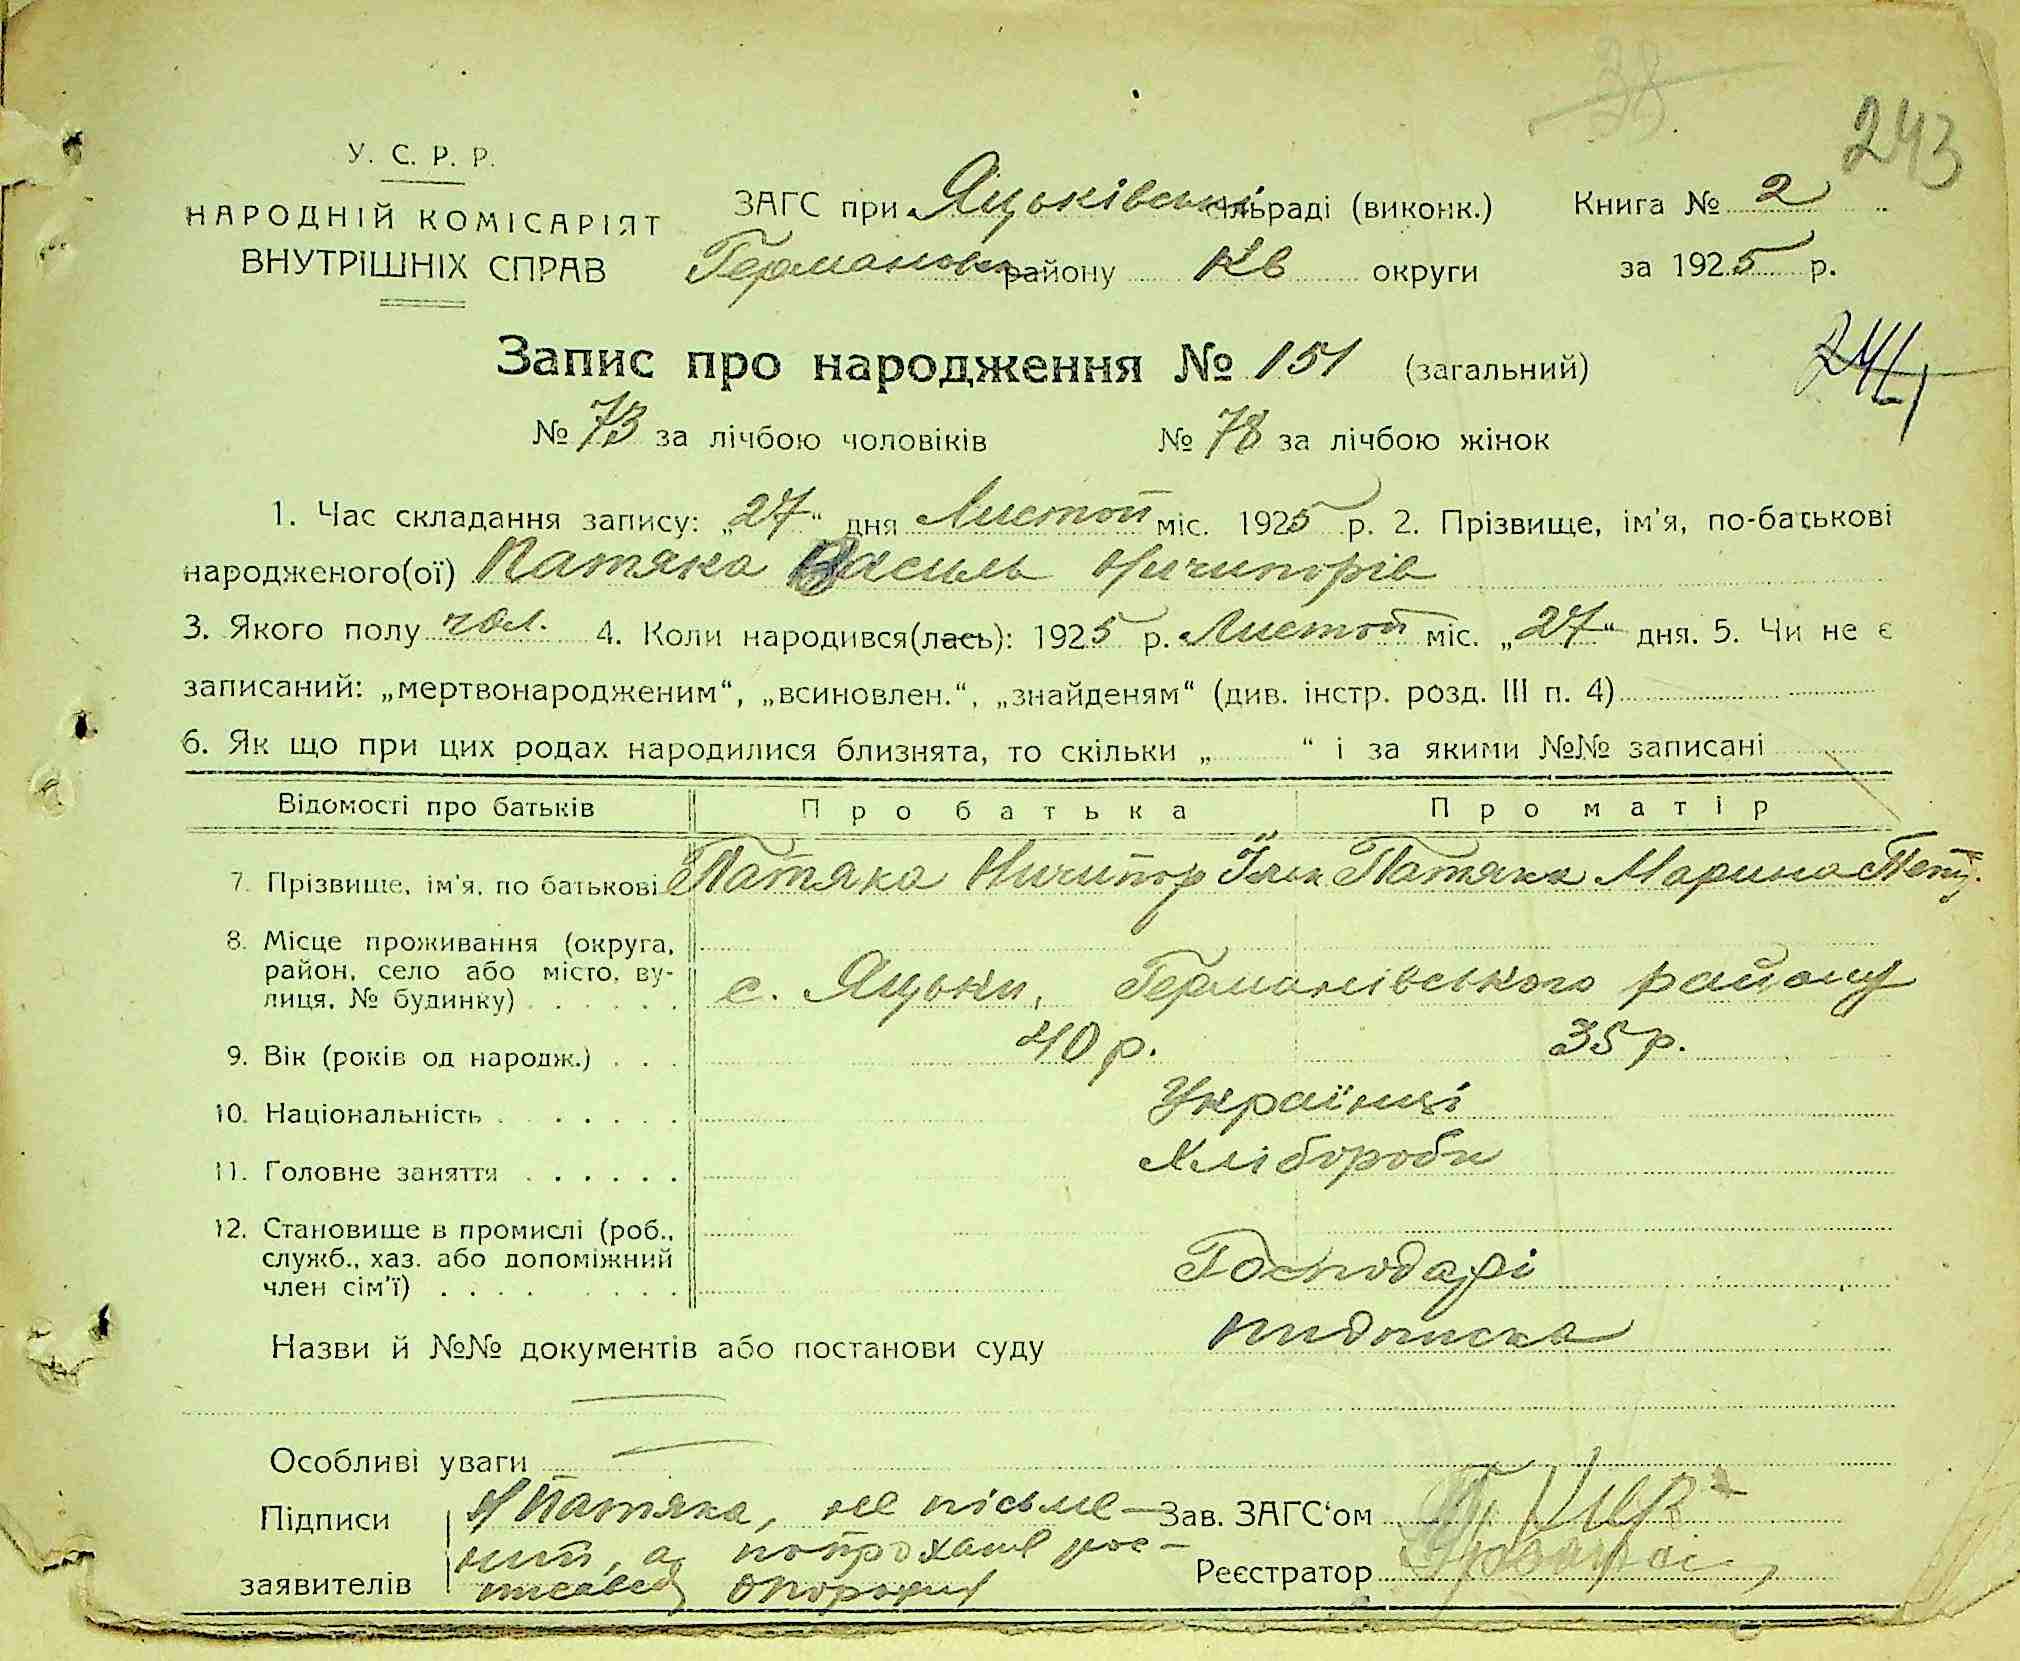 38
243
У. С. Р. Р.
НАРОДНІЙ КОМІСАРІЯТ
ВНУТРІШНІХ СПРАВ
ЗАГС при Яцьківській сільраді (виконк.) Книга № 2
Германов району Кв округи за 1925 р.
Запис про народження № 151 (загальний)
244
№ 73 за лічбою чоловіків № 78 за лічбою жінок
1. Час складання запису: „27“ дня Листоп міс. 1925 р. 2. Прізвище, ім'я, по-батькові
народженого(ої) Патяка Василь Ничипорів
3. Якого полу чол. 4. Коли народився(лась): 1925 р. Листоп міс. „27“ дня. 5. Чи не є
записаний: „мертвонародженим“, „всиновлен.“, „знайденям“ (див. інстр. розд. III п. 4)
6. Як що при цих родах народилися близнята, то скільки „ “ і за якими №№ записані
Відомості про батьків Про батька Про матір
7. Прізвище, ім'я, по батькові Патяка Ничипор Ілк Патяка Марина Петр.
8. Місце проживання (округа,
район, село або місто, ву-
лиця, № будинку) с. Яцьки, Германівського району
9. Вік (років од народж.) 40 р. 35 р.
10. Національність Українці
11. Головне заняття Хлібороби
12. Становище в промислі (роб.,
служб., хаз. або допоміжний
член сім'ї) Господарі
Назви й №№ документів або постанови суду підписка
Особливі уваги
Підписи Н Патяка, не пісьме- Зав. ЗАГС'ом
ний, а попроханє рос-
заявителів писався Реєстратор